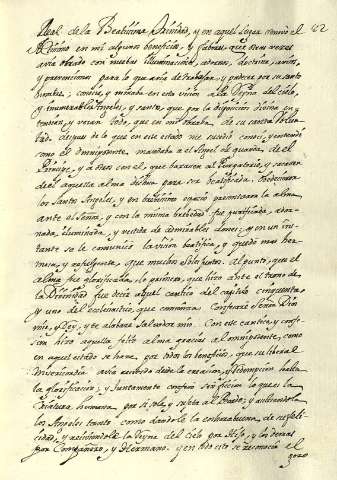 42
Real de la Beatissima Trinidad, y en aquel lugar renovó el
Altissimo en mi algunos beneficios, y fabores, que otras veces
avia obrado con nuebas illuminaciones, adornos, doctrina, avisos,
y prevenciones para lo que avia de trabajar, y padecer por su santo
nombre, conocí, y miraba en esta vision a la Reyna del cielo,
y inumerables Angeles, y santos, que por la disposicion divina en-
tendian, y veian todo, que en mi obraba de su santa volun-
tad. despues de lo que en este estado me sucedió conocí, y entendi
como el omnipotente mandaba a el Angel de guarda de el
Principe, y a otros con el, que baxaran al Purgatorio, y sacaran
de el aquella alma dichosa para ser beatificada. Obedecieron
los Santos Angeles, y en brevissimo espacio presentaron la alma
ante el Señor, y con la misma brebedad fue purificada, ador-
nada, iluminada, y vestida de admirables dones; y en un ins-
tante se le comunicó la vision beatifica, y quedó mas her-
mosa, y refulgente, que muchos soles juntos. Al punto, que el
alma fue glorificada, lo primero, que hizo ante el trono de
la Divinidad fue decir aquel cantico del capitulo cinquenta
y uno del eclesiastico, que comienza Confesaré Señor Dios
mio, y Rey, y te alabaré Salvador mio. Con este cantico, y confe-
sion hizo aquella feliz alma gracias al omnipotente, como
en aquel estado se hace por todos los beneficios, que su liberal
Misericordia avia recibido desde la creacion, y Redempcion hasta
la glorificacion; y juntamente confesó ser oficio lo que es la
Criatura humana por si sola, y sujeta al Pecado; y assistiendola
los Angeles santos como dandole la enhorabuena de su feli-
cidad, y recibiendole la Reyna del Cielo por Hijo, y los demas
por Compañero, y Hermano. y en todo esto se reconocia el
gozo